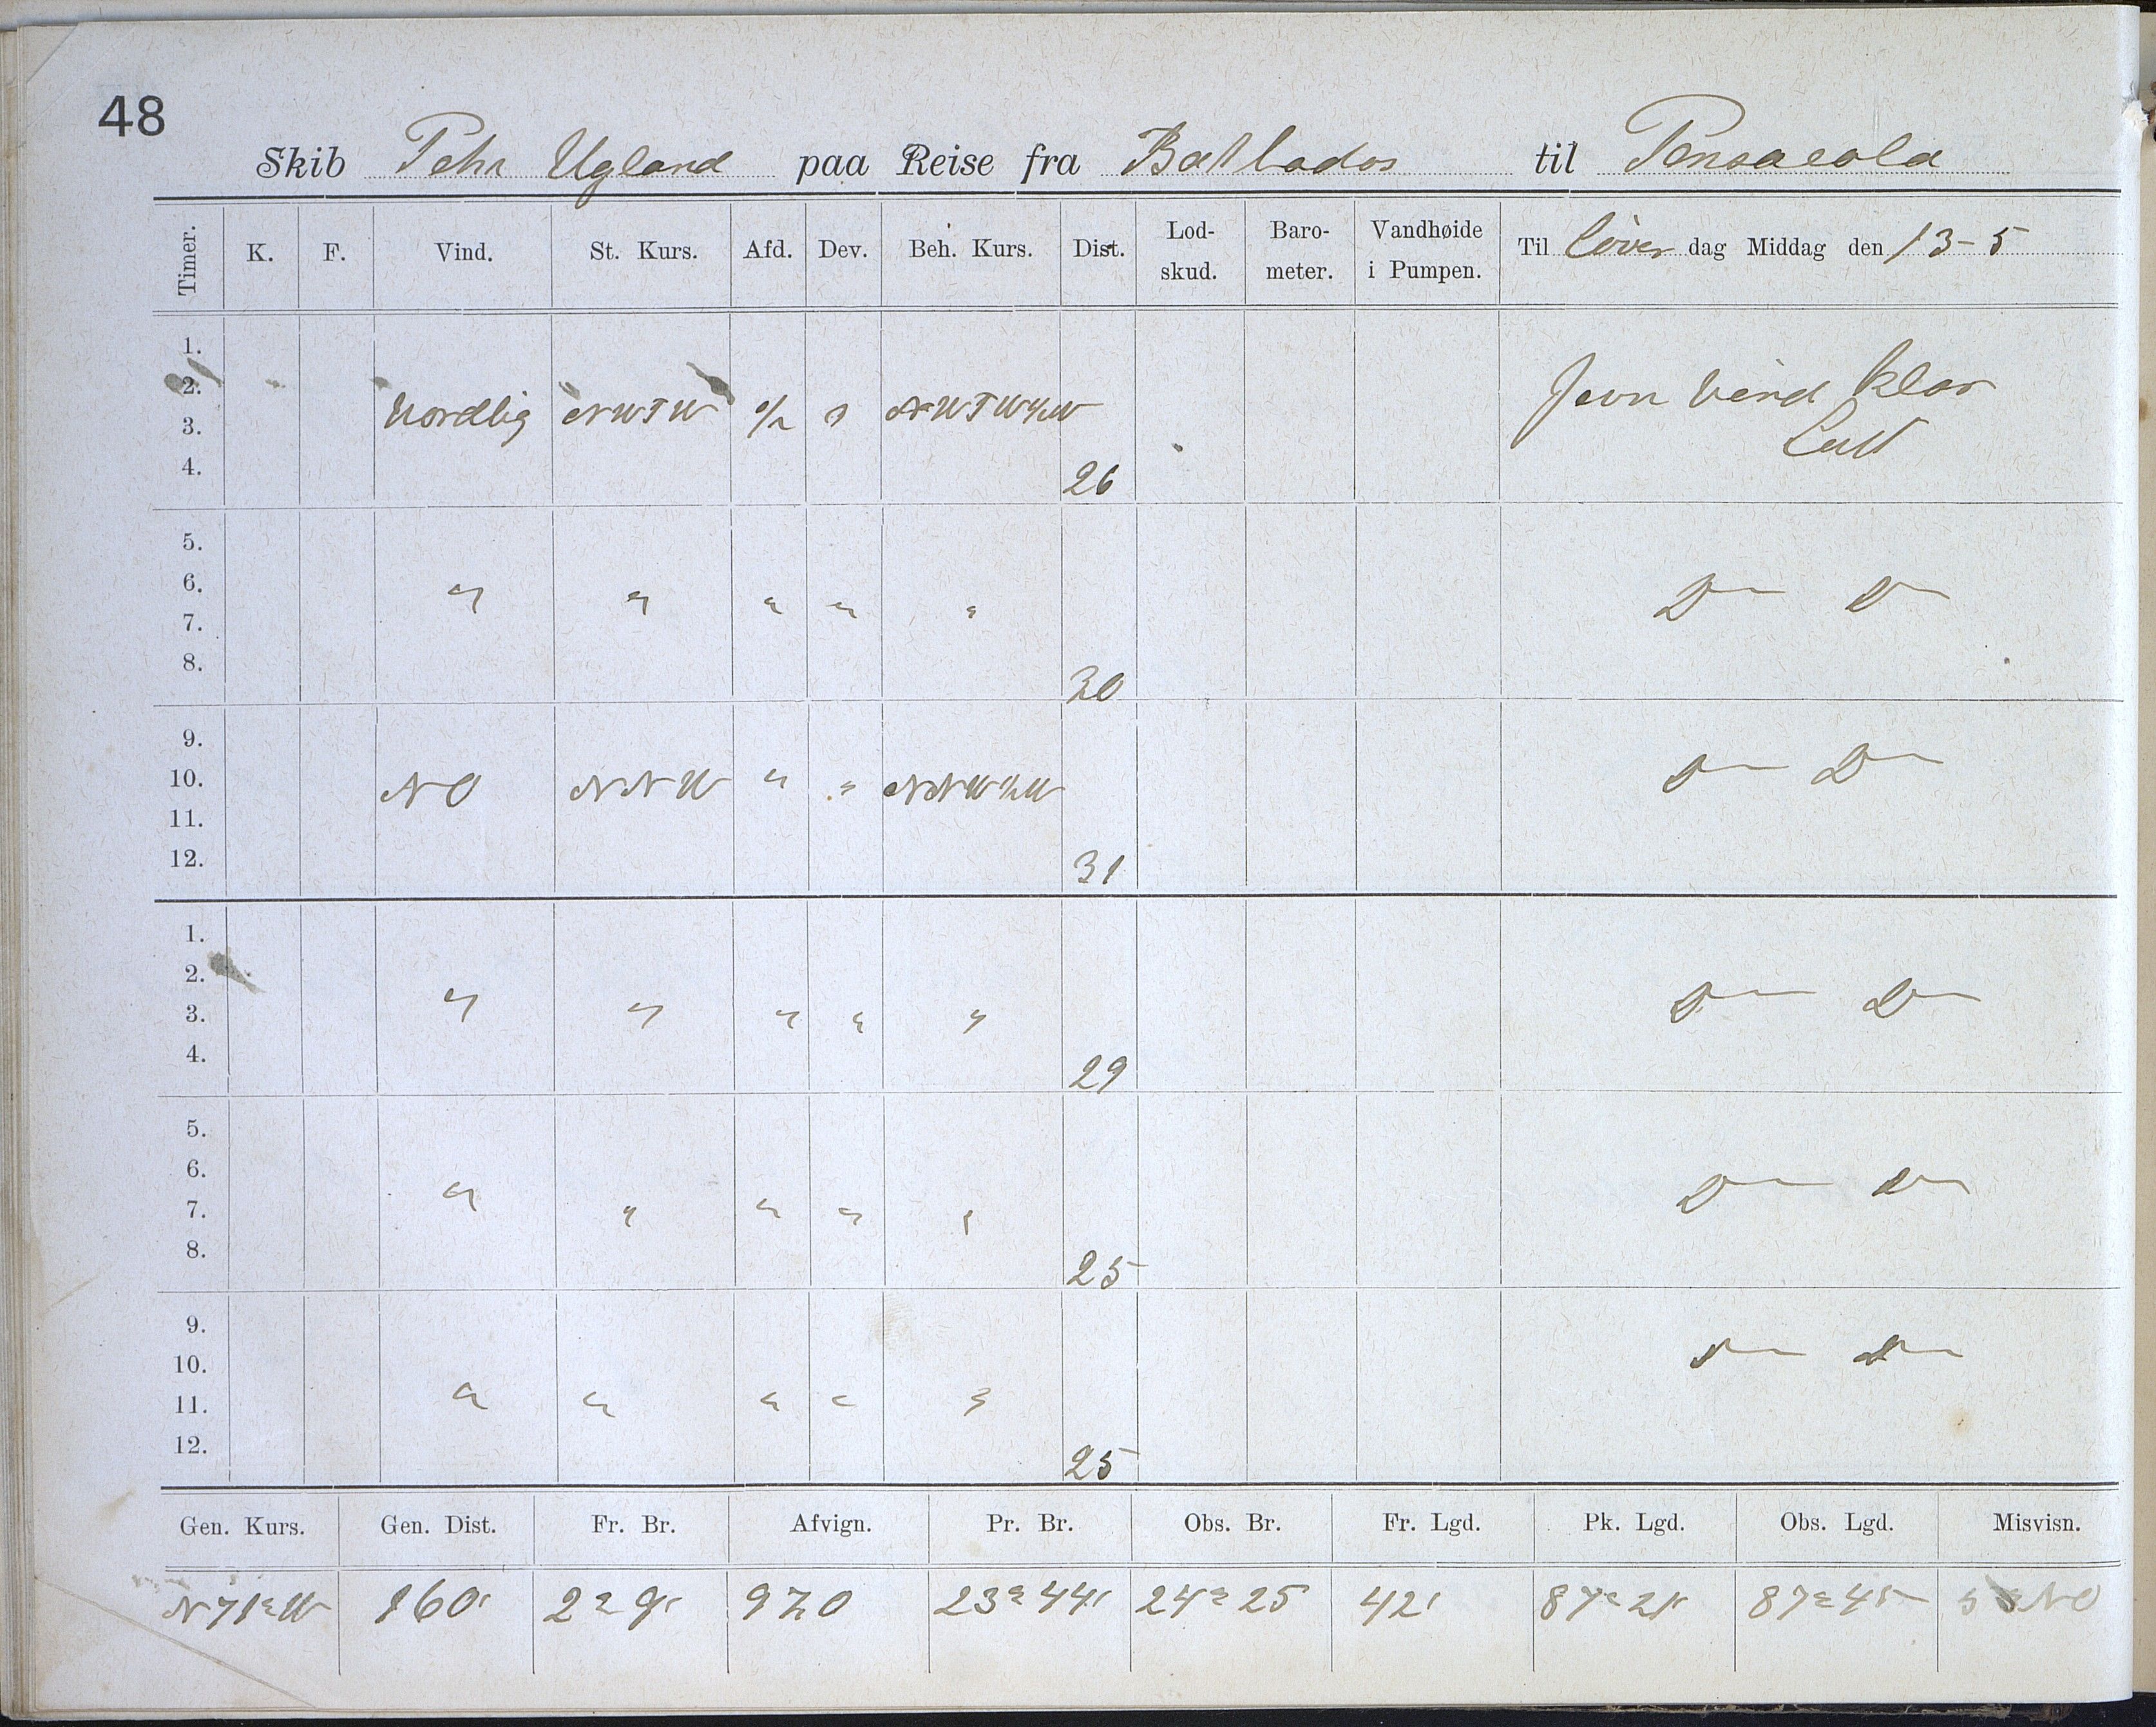 48
Skib Pehr Ugland paa Reise fra Barbados til Pensacola
Timer. K. F. Vind. St. Kurs. Afd. Dev. Beh. Kurs. Dist. Lod-skud. Baro-meter. Vandhøide i Pumpen. Til Löver dag Middag den 13-5
1.
2. Nordlig NWTW 1/2 NWTW1/2W Jevn Vind Klar
3. Luft
4. 26
5.
6. " " " " " D D
7.
8. 30
9.
10. NO NNW " " NNW1/2W D D
11.
12. 31
1.
2.
3. " " " " " D D
4. 29
5.
6.
7. " " " " " D D
8. 25
9.
10. D D
11. " " " " "
12. 25
Gen. Kurs. Gen. Dist. Fr. Br. Afvign. Pr. Br. Obs. Br. Fr. Lgd. Pk. Lgd. Obs. Lgd. Misvisn.
N71°W 160' 2° 9' 23° 44' 24° 25 42' 87° 21' 87° 45 5° NO